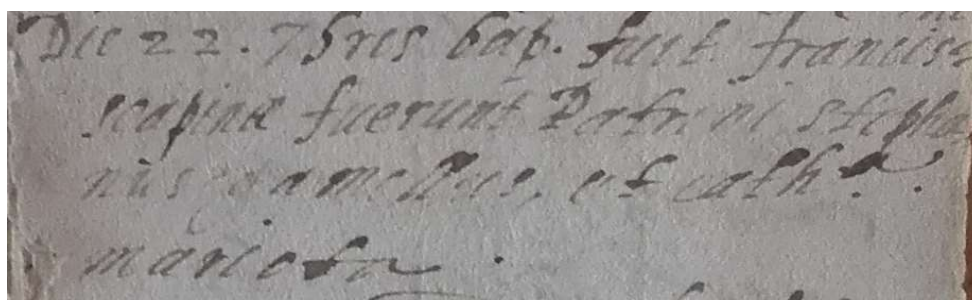 Die 22. 7bres bap. fuit francis
scapinæ fuerunt Patrini stepha
nus gamellus, et cath.a
mariota